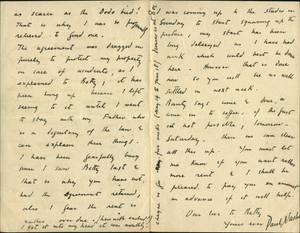 as scarce as the Dodo bird!
That is why I was so
relieved to find one.
The agreement was dragged on
purely to protect my property
in case of accidents, as I
explained to Betty, it has
been hung up because I left
seeing to it until I went
to stay with my Father who
is a dignitary of the law &
can explain these things.
I have been fearfully busy
since I saw Betty last &
that is why you have not
had the agreement returned,
also I fear the rent is
rather over due. I
I got it into my head it was monthly.
I was coming up to the studio on
Sunday to start squaring up the
picture, my start has been
long delayed as I have had
work which could best be done
here. However that is done
now so you will be well
settled in next week.
Betty says come & some,
come in to coffee, if the first
is not possible, tomorrow,
Saturday, then we can clear
all this up. You must let
me know if you want
more rent & I shall be
prepared to pay you an
in advance if it will help.
Our love to Betty
Yours ever